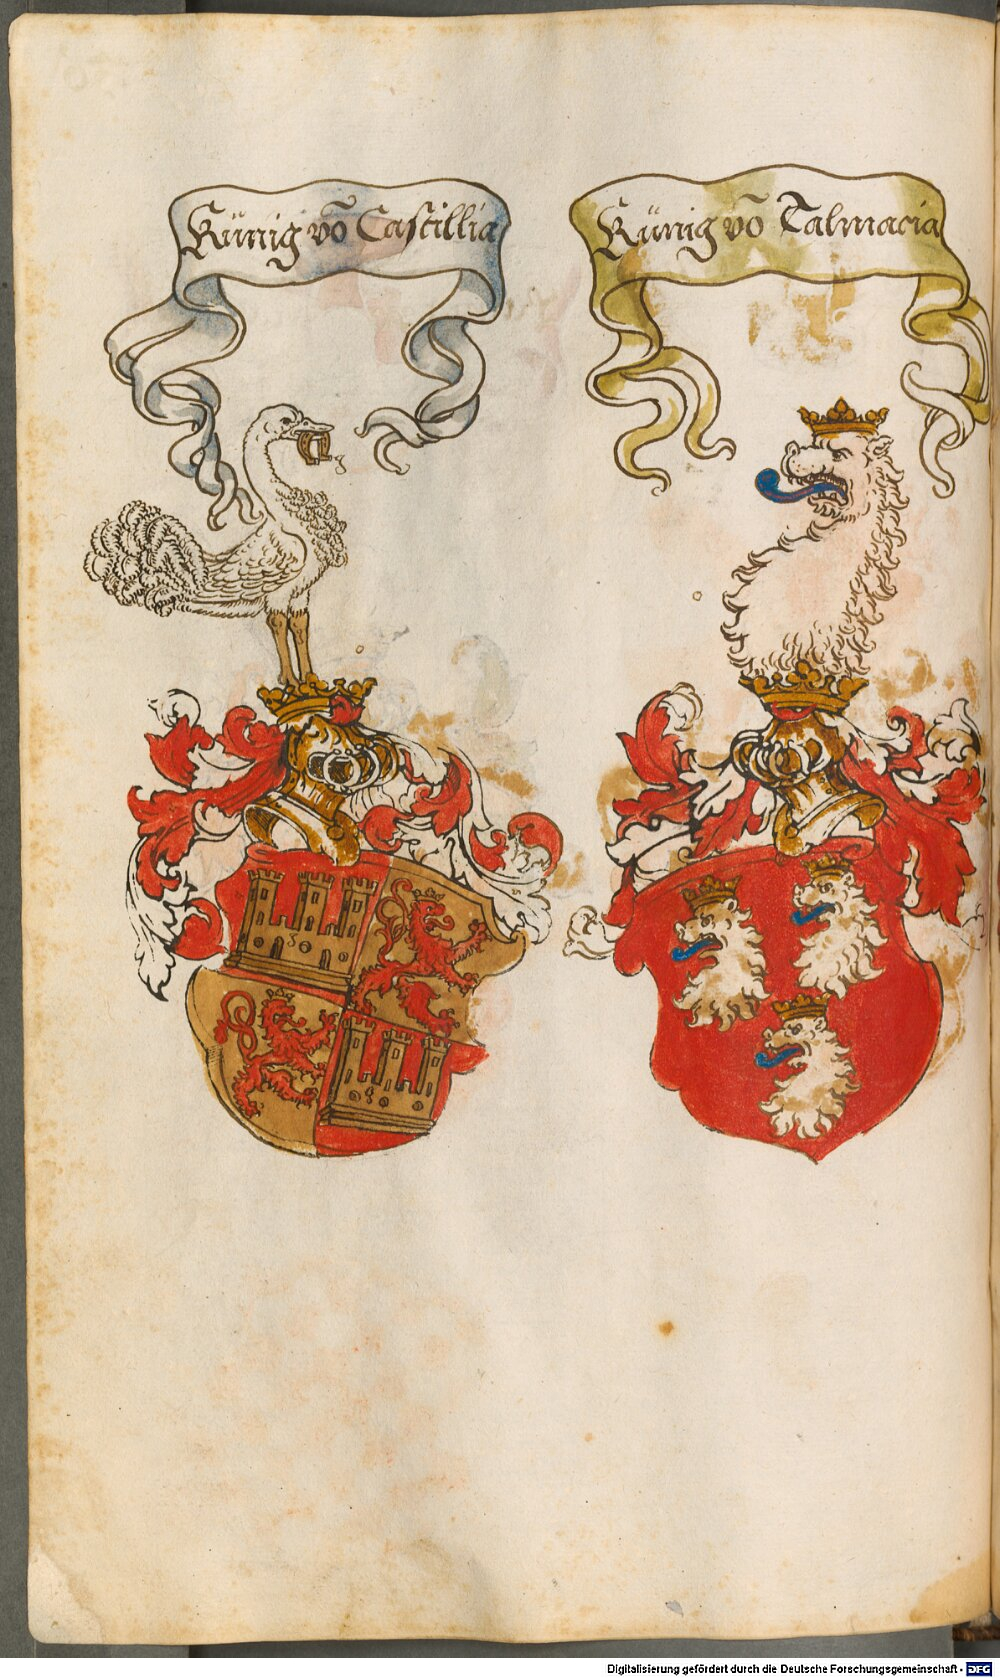 Künig võ Castillia
Künig võ Talmacia
Digitalisierung gefördert durch die Deutsche Forschungsgemeinschaft - DFG